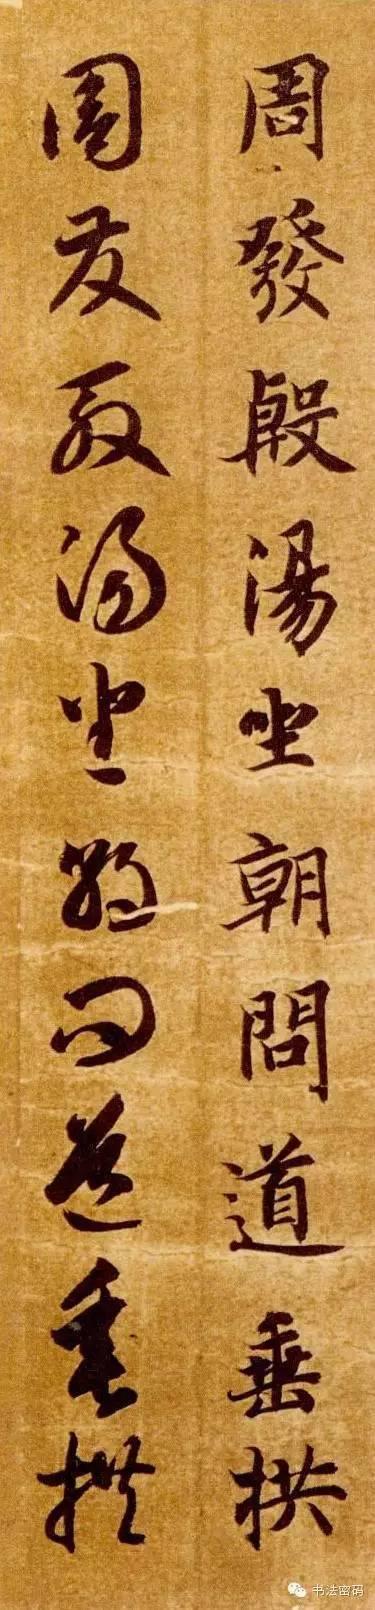 周發殷湯坐朝問道垂拱
周發殷湯坐朝問道垂拱
书法密码